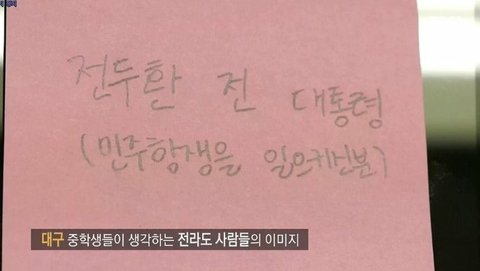 전두환 전 대통령
(민주항쟁을 일으키신분)
대구 중학생들이 생각하는 전라도 사람들의 이미지